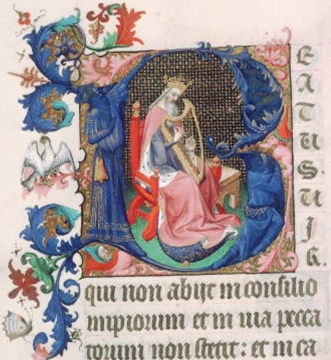 BEATUS·UIR.
qui non abijt in consilio
impiorum et in uia pecca
torum non stetit: et in ca